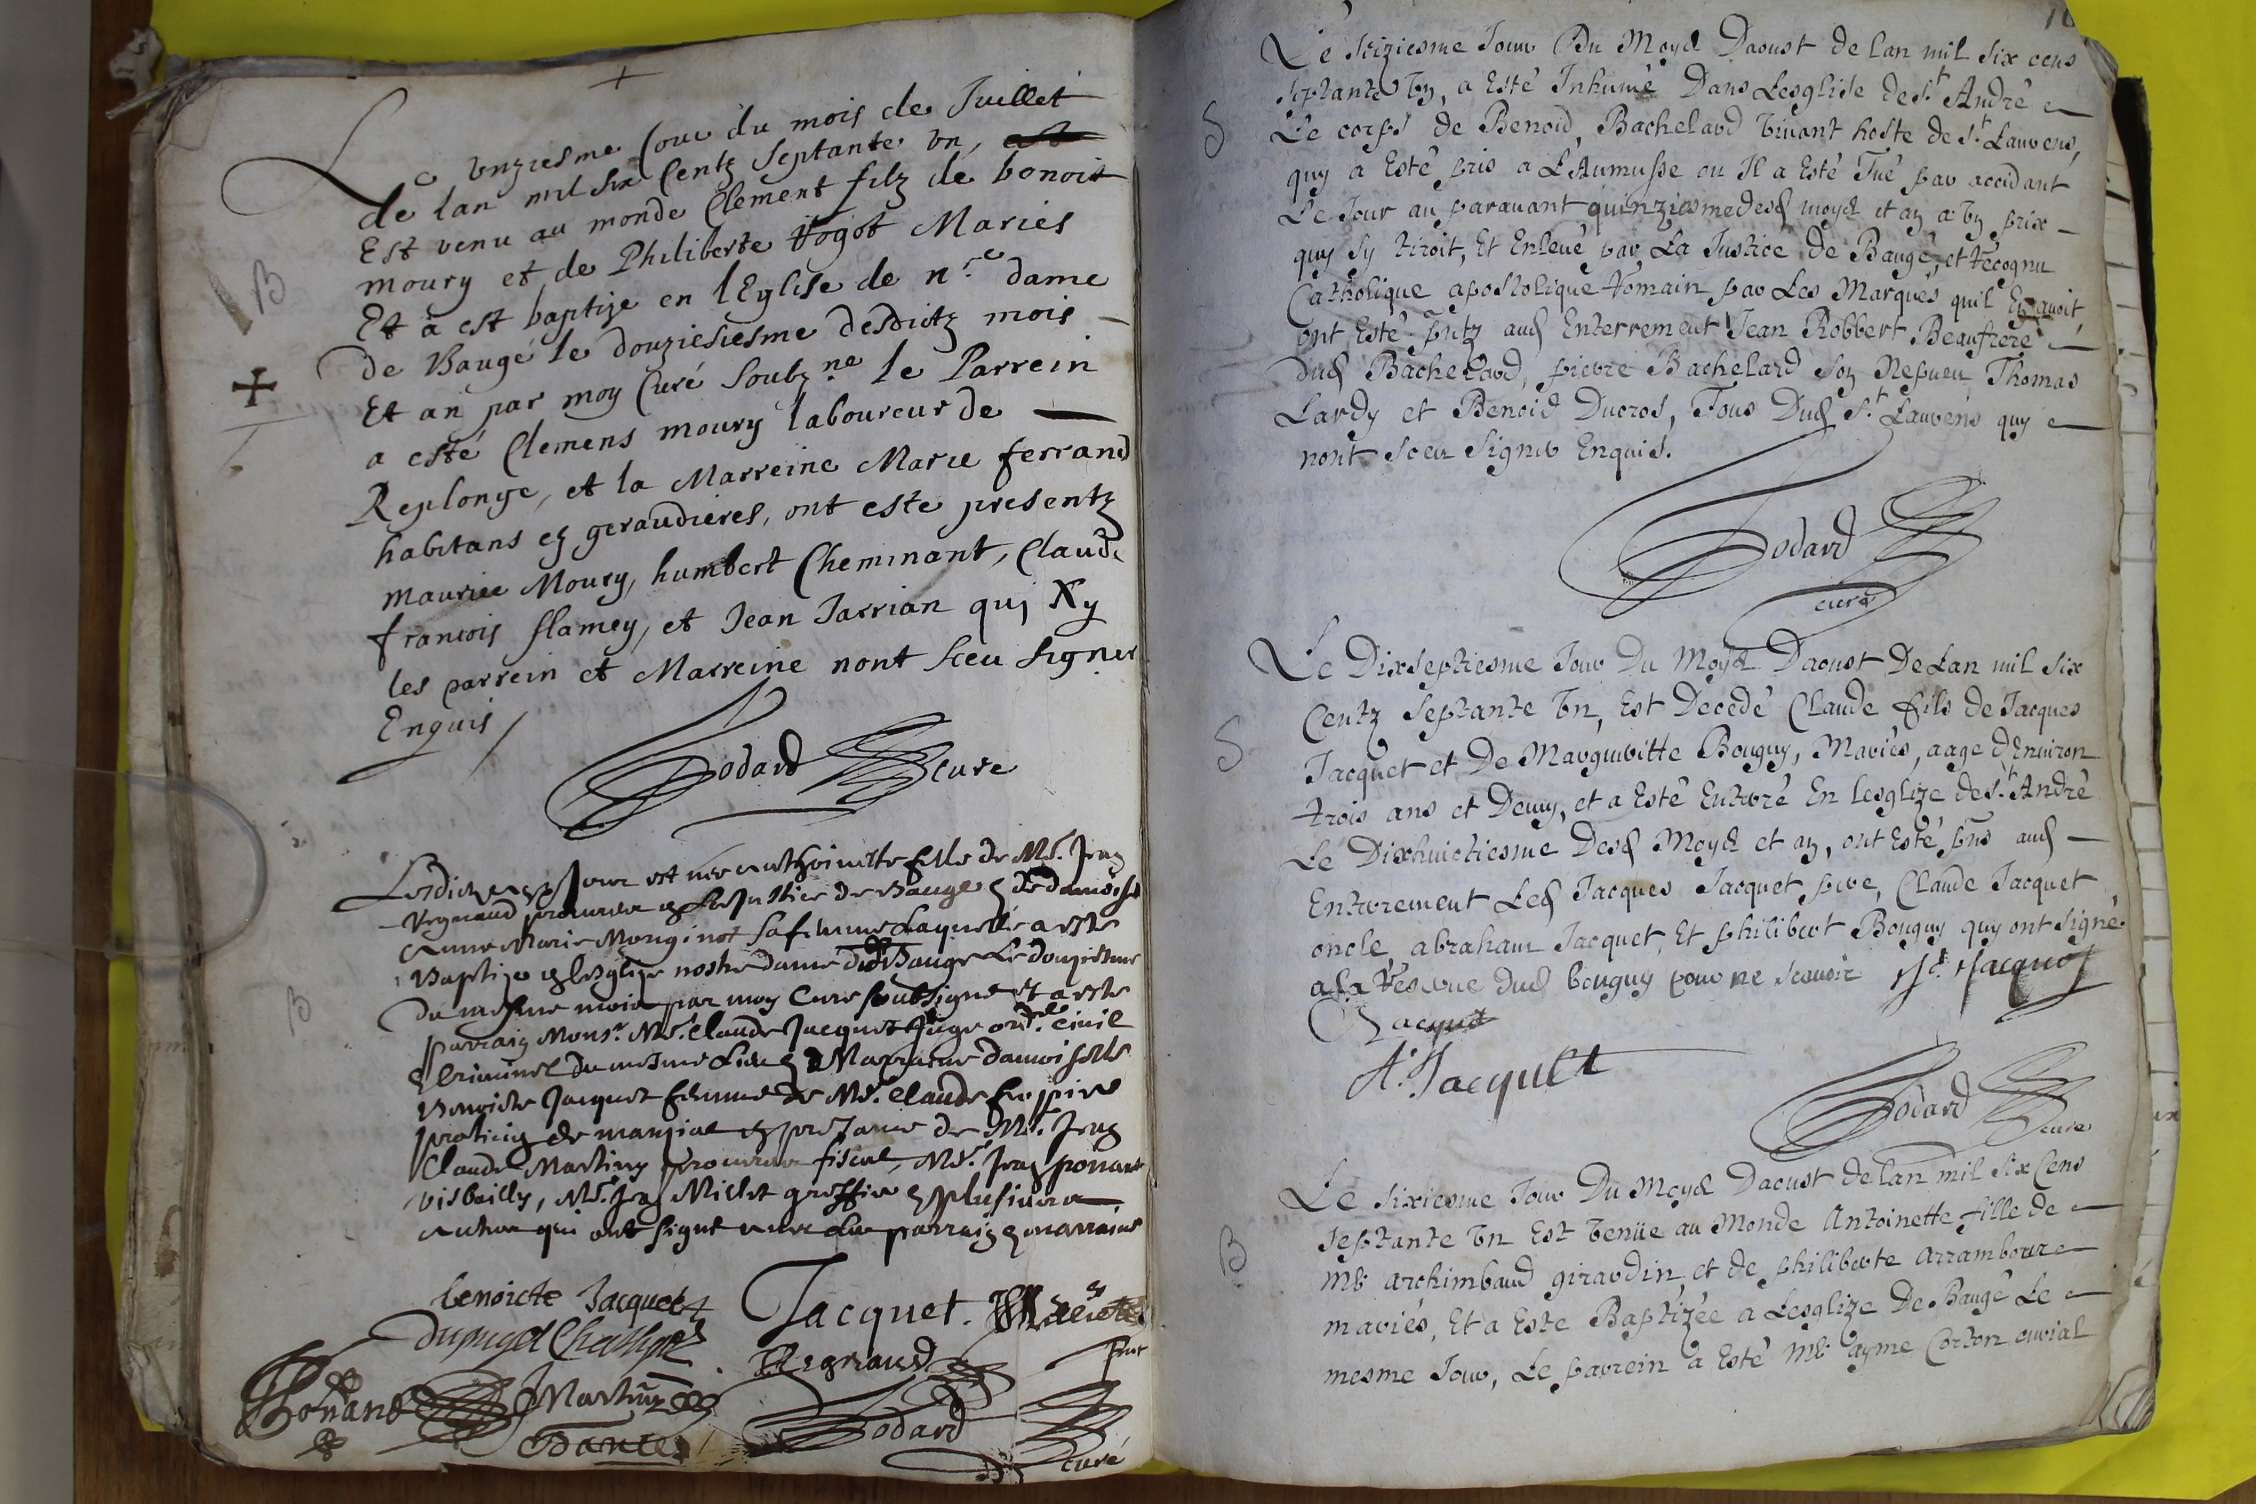 Le unziesme Jour du mois de Juillet
de lan mil six Centz septante un,
Est venu au monde Clement filz de benoit
moury et de Philiberte Vogot Mariés
Et a est baptize en lEglise de nre dame
B
de Baugé le douziesiesme desdictz mois
Et an par moy Curé soubzne le Parrein
a esté Clemens moury laboureur de
Replonge, et la Marreine Marie ferrand
habitans ez geraudieres, ont este presentz
maurice Moury, humbert Cheminant, Claude
francois flamey, et Jean Jarrian qui Ny
les parrein et Marreine nont sceu signer
Enquis
Godard curé
Jour est nee Anthoinette fille de Me. Jean
Regnaud procureur en la Justice de Bauge & de damoiselle
Anne Marie Monginot sa femme laquelle a este
Baptize en lesglize nostre dame dud Bauge Le douziesme
B
du mesme mois par moy Cure soubsigné et a este
parrain Monsr. Me. Claude Jacquet Juge ordre. Civil
& Criminel du mesme Lieu & Marraine damoiselle
Benoiste Jacquet femme de Me. Claude
praticien de manziat en presance de Me. Jean
Claude Martin procureur fiscal, Me. Jean ponard
visbailly, Me. Jean Millet greffier & plusieurs
autres qui ont signé avec les parrain & marraine
benoicte Jacquet
Jacquet.
Regnaud
Ponard
Martin
Godard
curé
Le seiziesme Jour Du Moys Daoust de lan mil six cens
septante Un, a Esté Inhumé Dans Lesglise de St André
S
Le corps de Benoid Bachelard vivant hoste de St Laurens,
quy a Esté pris a L'Aumusse ou Il a Esté Tué par accidant
Le Jour au paravant quinziesme desd moys et an a Un prix
quy sy tiroit, Et Enlevé par La Justice de Baugé, et recognu
Catholique apostolique romain par Les Marques quil En avoit,
ont Esté pntz aud Enterrement Jean Robbert Beaufrere
Dud Bachelard, pierre Bachelard son Nepveu Thomas
Lardy et Benoid Ducros, Tous Dud St Laurens quy
nont sceu signer Enquis.
Godard
curé
Le Dixseptiesme Jour Du Moys Daoust De Lan mil six
Centz septante Un, Est Decedé Claude fils de Jacques
S
Jacquet et De Margueritte Bouguy, Mariés, aage dEnviron
trois ans et Demy, et a Esté Enterré En lesglize de St André
Le Dixhuictiesme Desd Moys et an, ont Esté pns aud
Enterrement Led Jacques Jacquet pere, Claude Jacquet
oncle, abraham Jacquet, Et philibert Bouguy quy ont signé.
a la Reserve dud bouguy pour ne scavoir
Jacquet
Jacquet
A. Jacquet
Godard
curé
Le sixiesme Jour Du Moys Daoust de lan mil six Cens
septante Un Est Venüe au Monde Antoinette fille de
B
Me archimbaud girardin et de philiberte arramboure
mariés, Et a Este Baptizée a Lesglize De Baugé Le
mesme Jour, Le parrein a Esté Me ayme Corton curial